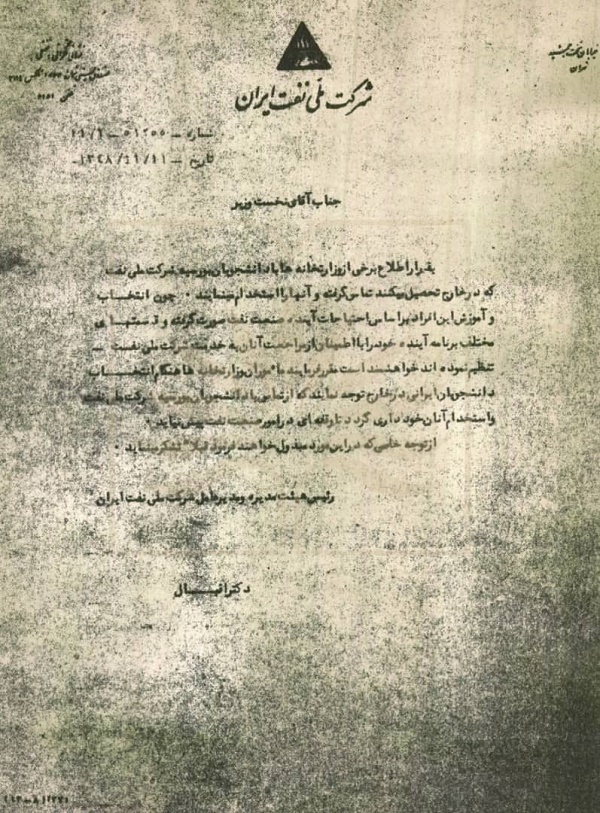 خیابان تخت جمشید
تهران
نشانی تلگرافی: نفتی
تلکس
شرکت ملی نفت ایران
شماره —
تاریخ — ۱۳۴۸/۱۱/۱۱
جناب آقای نخست وزیر
بقرار اطلاع برخی از وزارتخانه ها با دانشجویان بورسیه شرکت ملی نفت
که در خارج تحصیل میکنند تماس گرفته و آنها را استخدام مینمایند . چون انتخاب
و آموزش این افراد بر اساس احتیاجات آینده صنعت نفت صورت گرفته و قسمتهای
مختلف برنامه آینده خود را با اطمینان از مراجعت آنان به خدمت شرکت ملی نفت —
تنظیم نموده اند خواهشمند است مقرر فرمایند مأموران وزارتخانه ها هنگام انتخاب
دانشجویان ایرانی در خارج توجه نمایند که از تماس با دانشجویان بورسیه شرکت ملی نفت
و استخدام آنان خود داری گردد تا وقفه ای در امور صنعت نفت پیش نیاید .
از توجه خاصی که در این مورد مبذول خواهند فرمود قبلاً تشکر مینماید .
رئیس هیئت مدیره و مدیر عامل شرکت ملی نفت ایران
دکتر اقبال